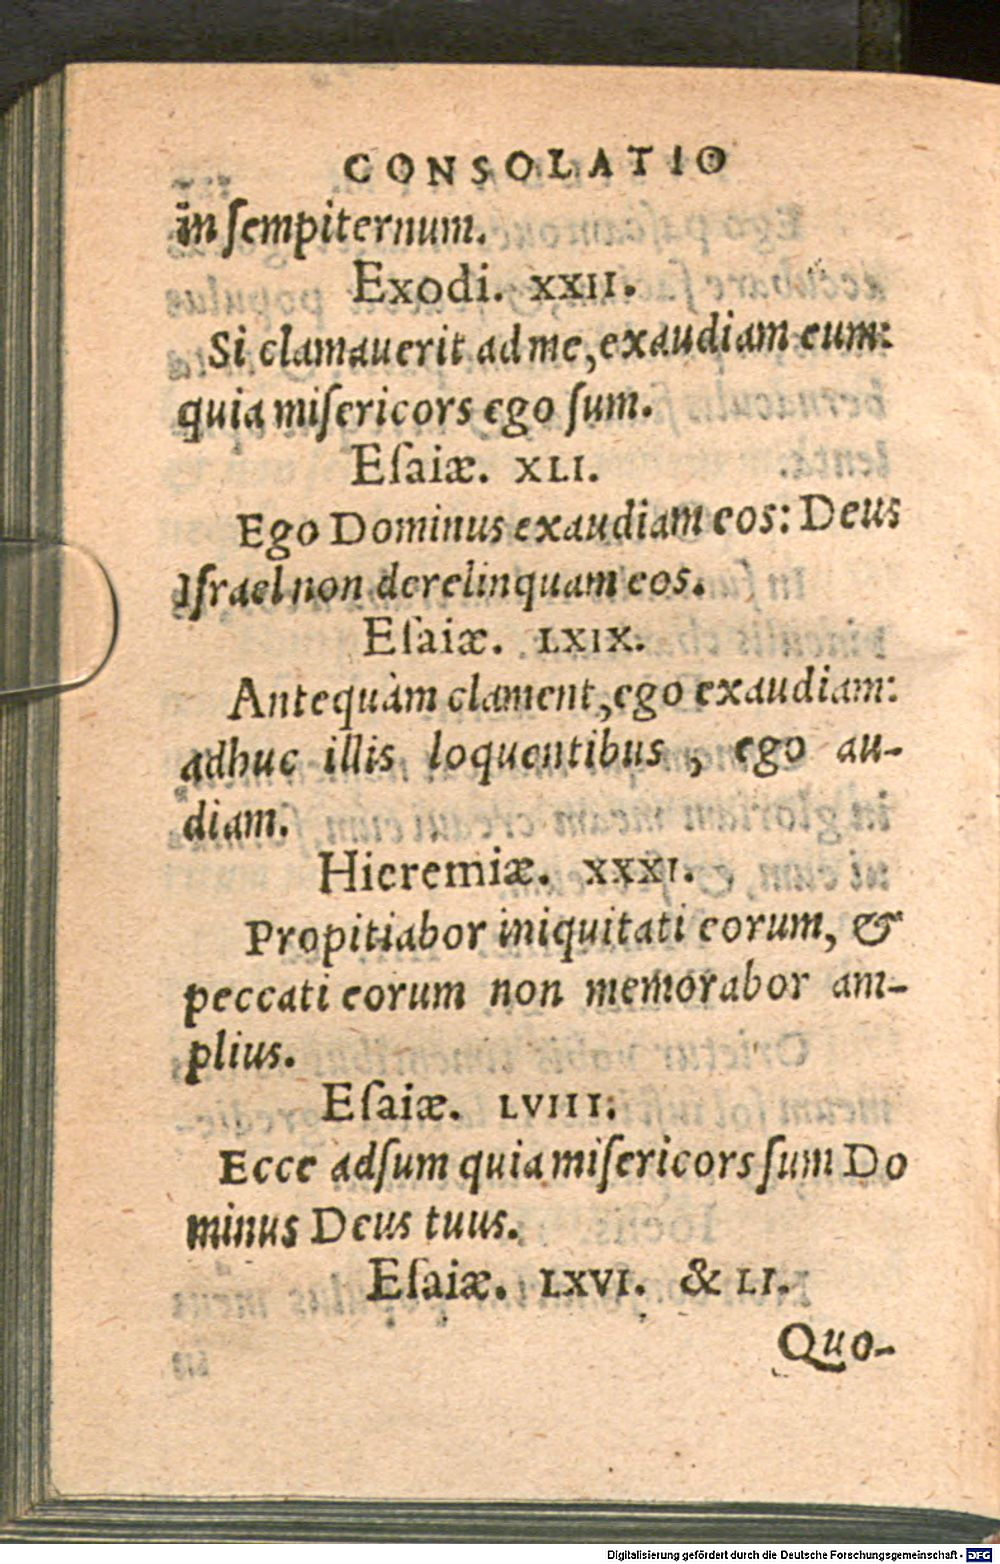 CONSOLATIO
in ſempiternum.
Exodi. XXII.
Si clamauerit ad me, exaudiam eum:
quia miſericors ego ſum.
Eſaiæ. XLI.
Ego Dominus exaudiam eos: Deus
Iſrael non derelinquam eos.
Eſaiæ. LXIX.
Antequàm clament, ego exaudiam:
adhuc illis loquentibus, ego au-
diam.
Hieremiæ. XXXI.
Propitiabor iniquitati eorum, &
peccati eorum non memorabor am-
plius.
Eſaiæ. LVIII.
Ecce adſum quia miſericors ſum Do
minus Deus tuus.
Eſaiæ. LXVI. & LI.
Quo-
Digitalisierung gefördert durch die Deutsche Forschungsgemeinschaft - DFG